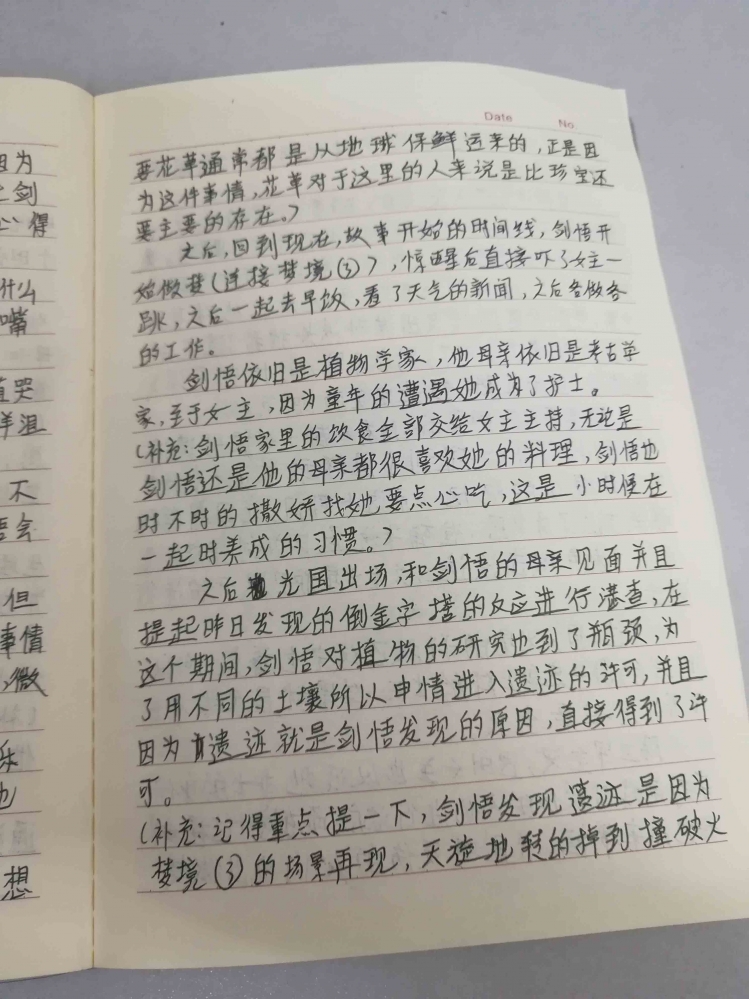 因为
剑
心得
什么
嘴
哭
泪
不
会
但
事情
微
乐
也
想
Date No
要花草通常都是从地球保鲜运来的,正是因
为这件事情,花草对于这里的人来说是比珍宝还
要主要的存在。)
之后,回到现在,故事开始的时间线,剑悟开
始做梦(连接梦境③),惊醒后直接吓了女主一
跳,之后一起去早饮,看了天气的新闻,之后各做各
的工作。
剑悟依旧是植物学家,他母亲依旧是考古学
家,至于女主,因为童年的遭遇她成为了护士。
(补充:剑悟家里的饮食全部交给女主主持,无论是
剑悟还是他的母亲都很喜欢她的料理,剑悟也
时不时的撒娇找她要点心吃,这是小时候在
一起时养成的习惯。)
之后光国出场,和剑悟的母亲见面并且
提起昨日发现的倒金字塔的反应进行潜查,在
这个期间,剑悟对植物的研究也到了瓶颈,为
了用不同的土壤所以申情进入遗迹的许可,并且
因为遗迹就是剑悟发现的原因,直接得到了许
可。
(补充:记得重点提一下,剑悟发现遗迹是因为
梦境③的场景再现,天旋地转的掉到撞破火